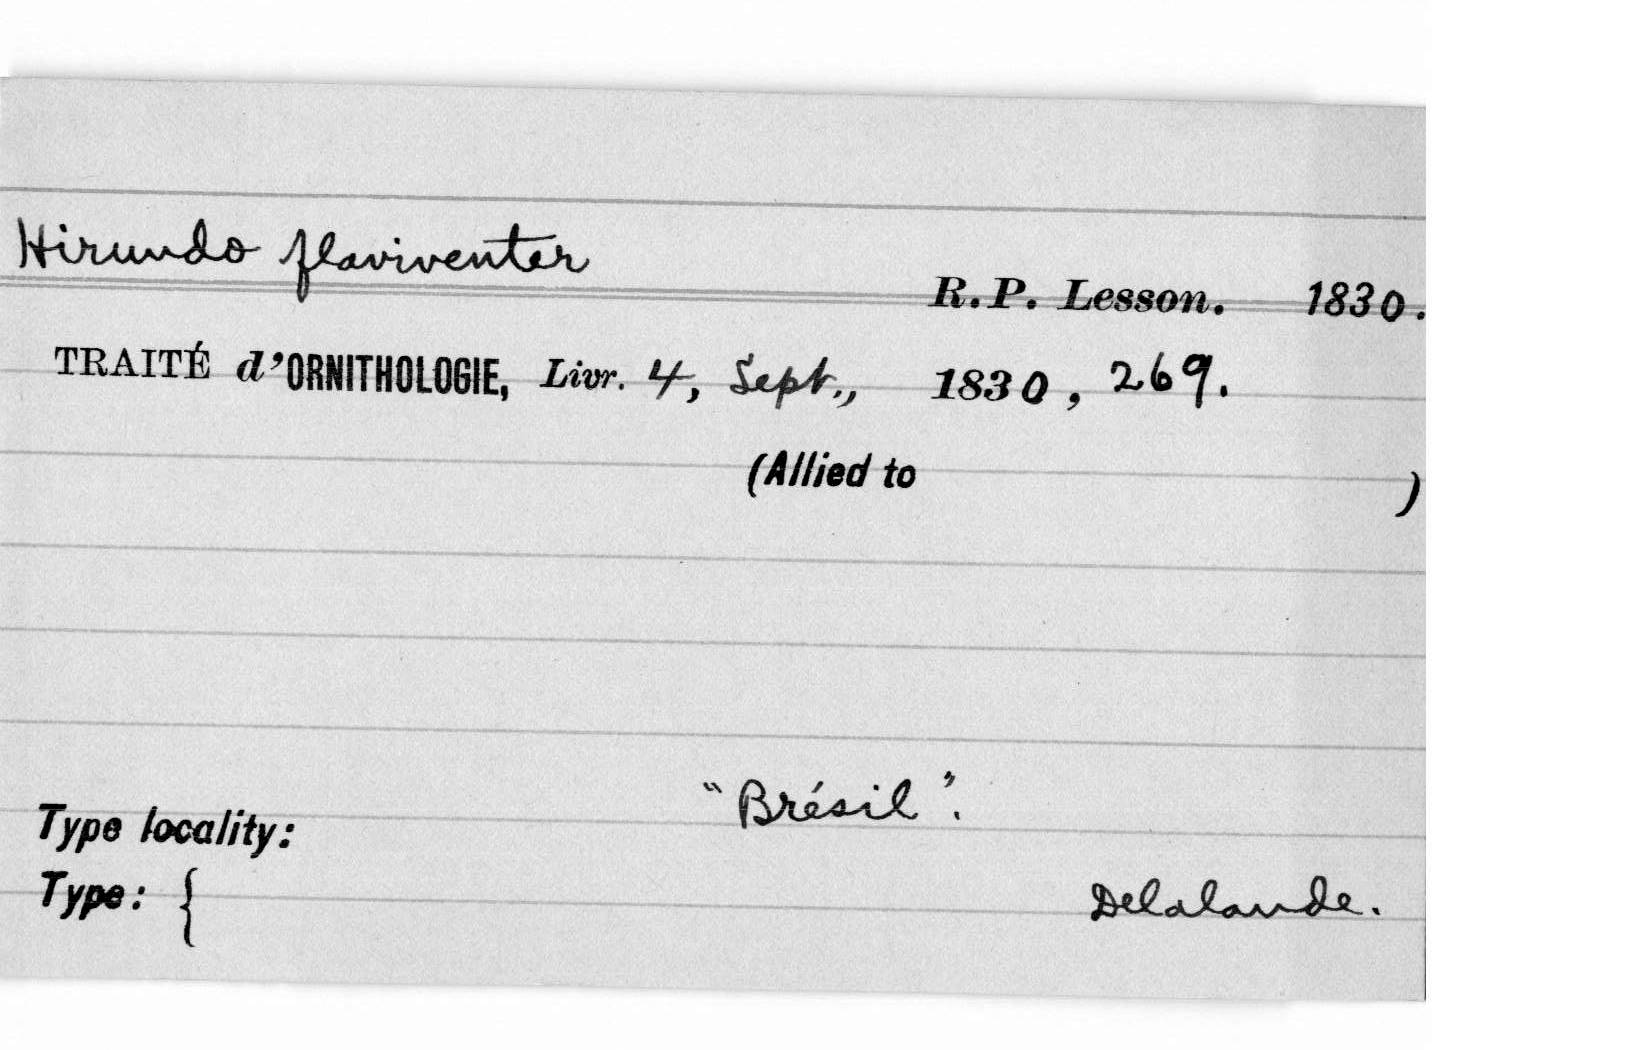 Hirundo flaviventer
R.P. Lesson. 1830.
TRAITÉ d'ORNITHOLOGIE, Livr. 4, Sept., 1830, 269.
(Allied to )
Type locality: "Brésil".
Type: { Delalande.